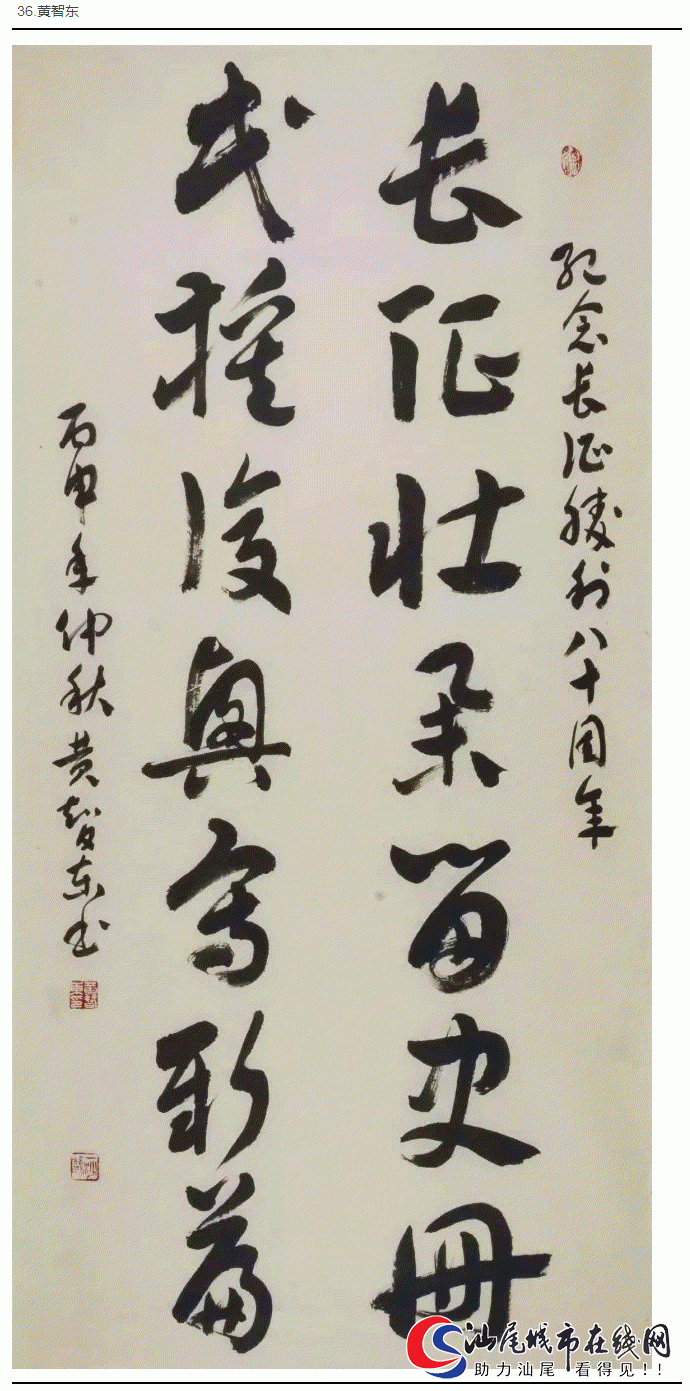 36.黄智东
纪念长征勝利八十周年
长征壮举留史册
民族復興写新篇
丙申年仲秋黄智东书
汕尾城市在线网
助力汕尾 看得见!!